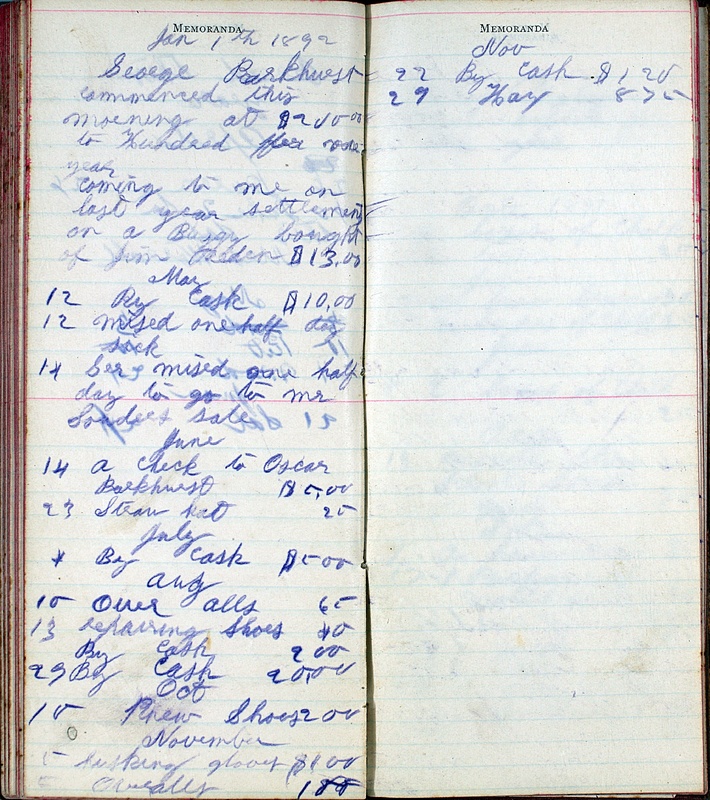 MEMORANDA
Jan 1th 1892
George Parkhurst
commenced this
morning at $200.00
to Hundred for one
year
coming to me on
last year settlement
on a Buggy bought
of Jim $13.00
May
12 By Cash $10.00
12 mised one half day
sick
14 Geo mised one half
day to go to mr
Souders Sale
June
14 a check to Oscar
Parkhurst $5.00
23 Straw hat 25
July
4 By Cash $5.00
Aug
10 Over alls 65
13 repairing Shoes 40
By Cash 2 00
29 By Cash 20.00
Oct
10 Shoes 2 00
November
5 husking gloves $1 00
5 Overalls
MEMORANDA
Nov
22 By Cash $1 20
29 Hay 8 75